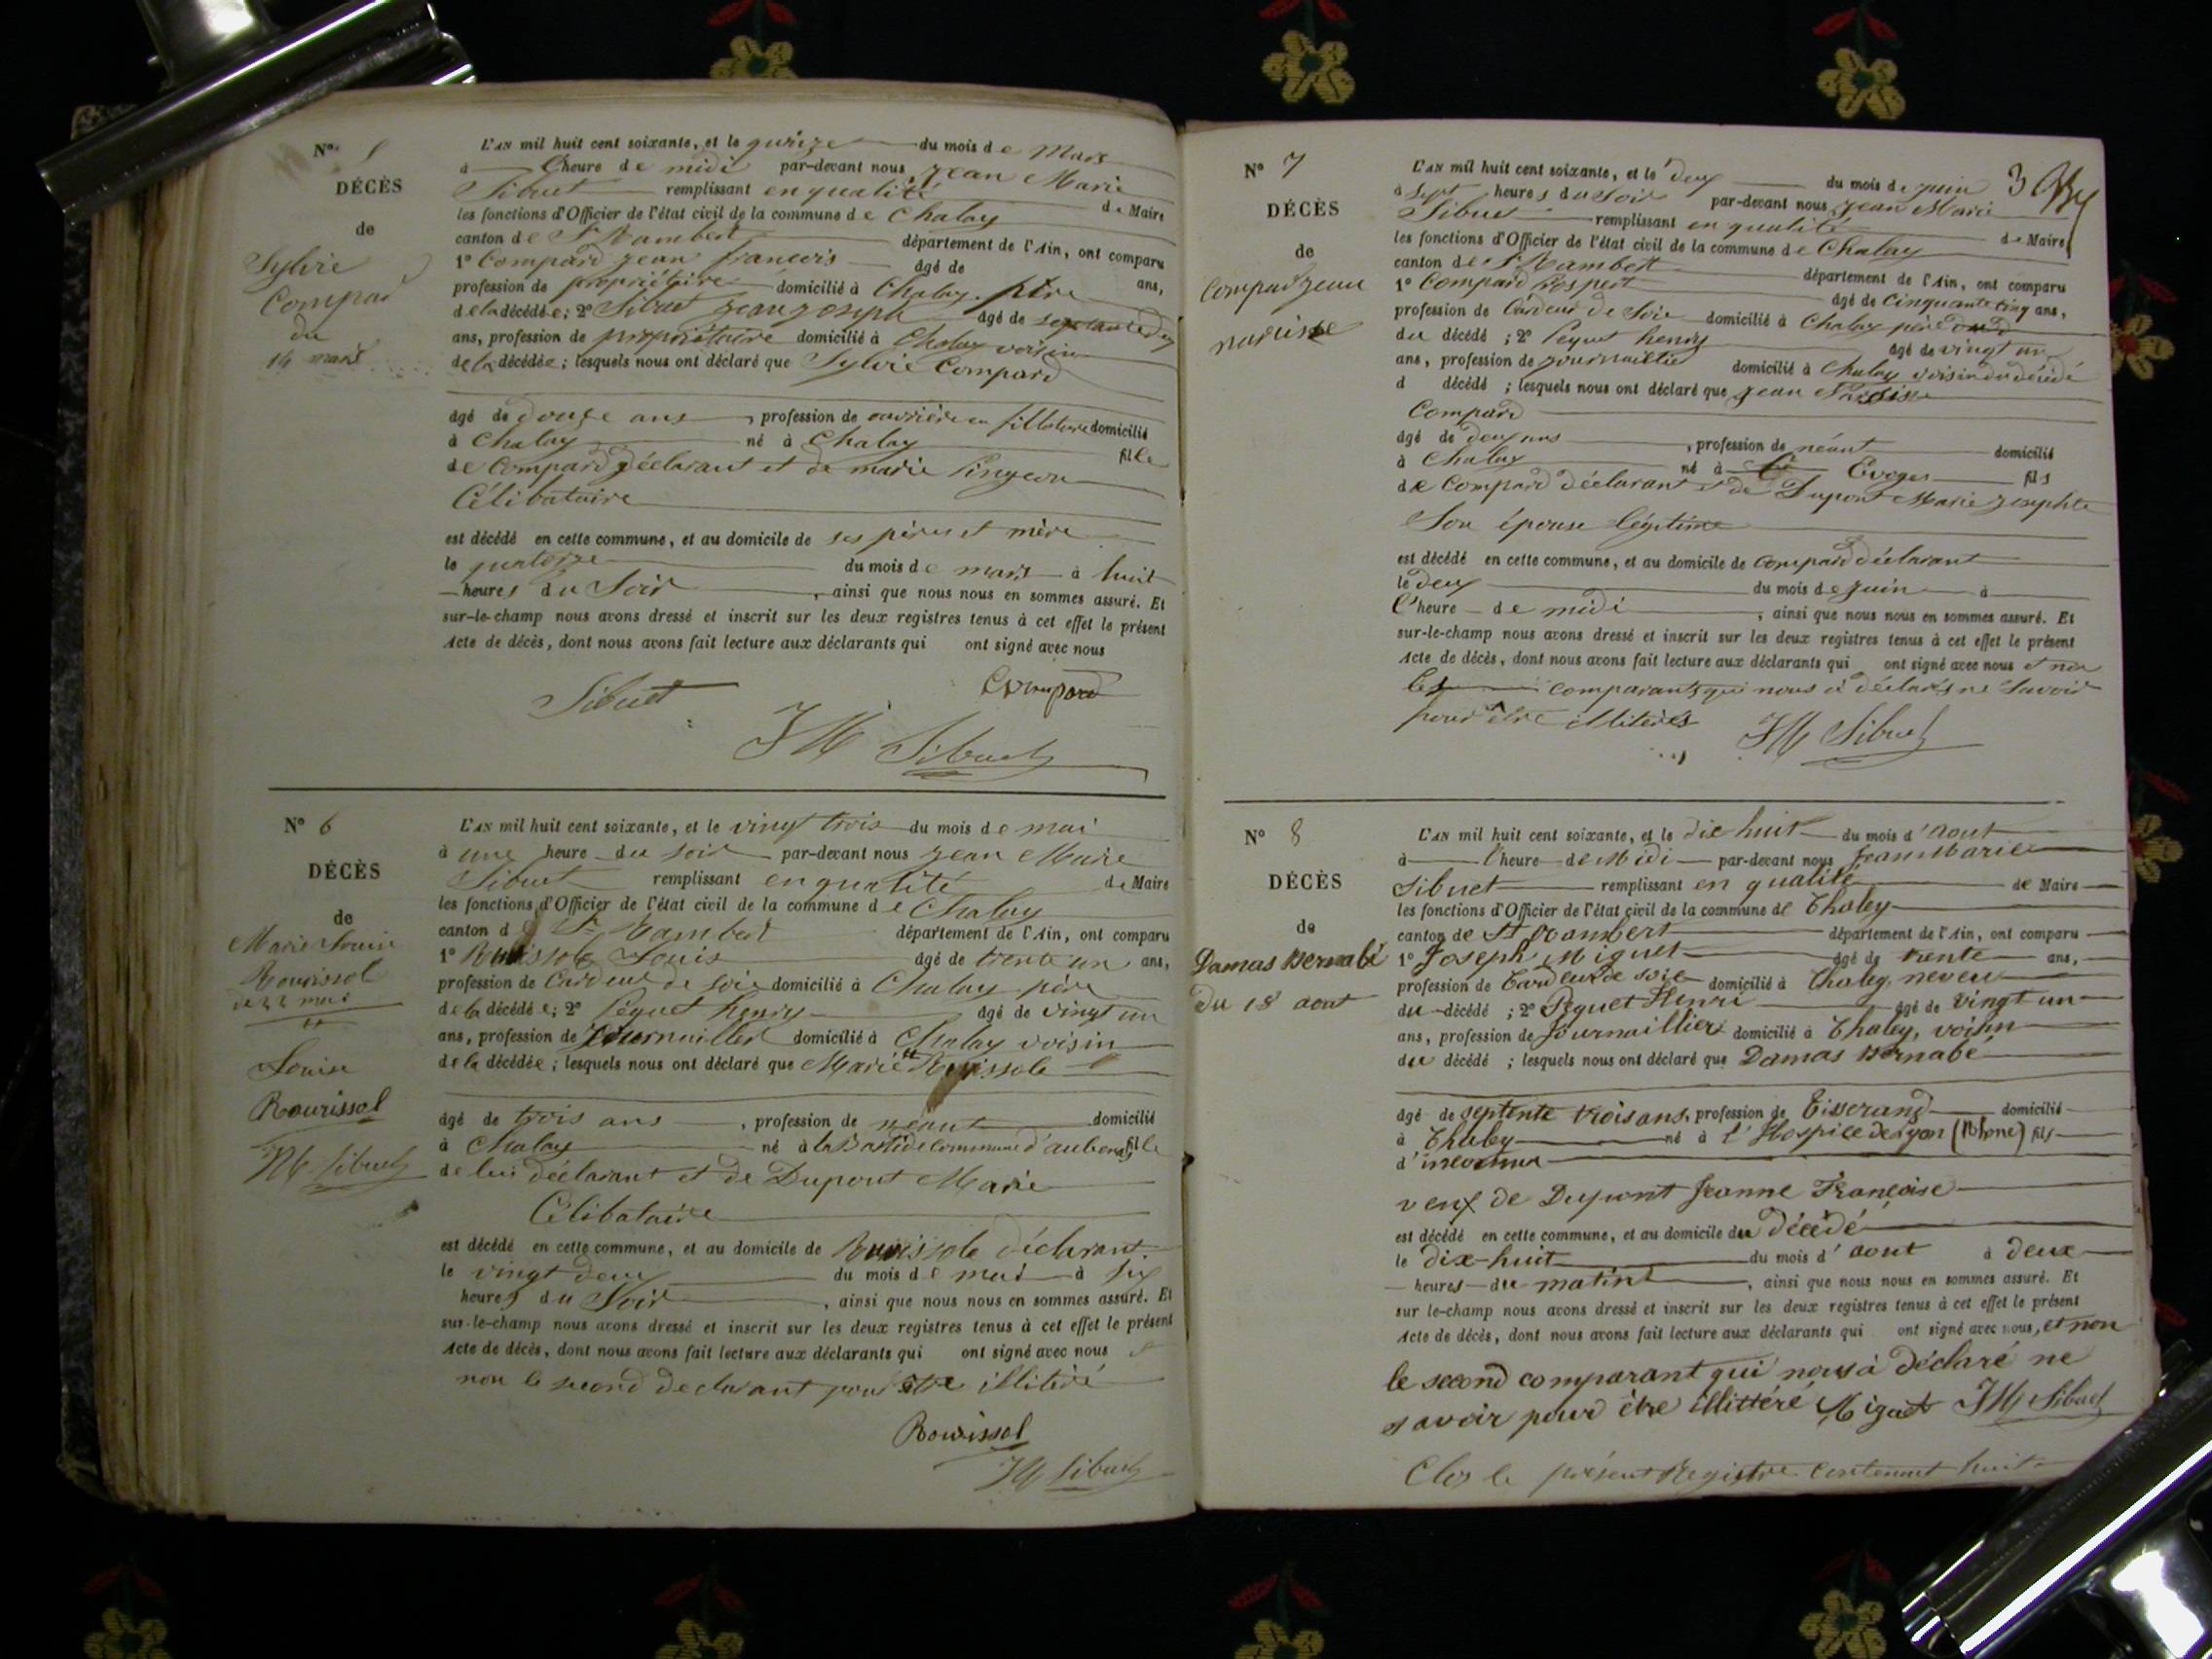 N° 5
DÉCÈS
de
Sylvie
Compar
du
14 mars
L'AN mil huit cent soixante, et le quinze du mois de Mars
à l'heure de midi par-devant nous Jean Marie
Sibuet remplissant en qualité de Maire
les fonctions d'Officier de l'état civil de la commune de Chaley
canton de St Rambert département de l'Ain, ont comparu
1° Compard Jean françois âgé de ans,
profession de propriétaire domicilié à Chaley père
de la décédée ; 2° Sibuet Jean Joseph âgé de
ans, profession de propriétaire domicilié à Chaley voisin
de la décédée ; lesquels nous ont déclaré que Sylvie Compard
âgé de douze ans, profession de ouvrière en fillature domicilié
à Chaley né à Chaley fille
de Compard déclarant et de marie Pingeon
Célibataire
est décédé en cette commune, et au domicile de ses père et mère
le quatorze du mois de mars à huit
heures du Soir, ainsi que nous nous en sommes assuré. Et
sur-le-champ nous avons dressé et inscrit sur les deux registres tenus à cet effet le présent
Acte de décès, dont nous avons fait lecture aux déclarants qui ont signé avec nous
Sibuet Compard
JM Sibuet
N° 6
DÉCÈS
de
Marie Louise
Rourissol
du 22 mai
Louise
Rourissol
JM Sibuet
L'AN mil huit cent soixante, et le vingt trois du mois de mai
à une heure du soir par-devant nous Jean Marie
Sibuet remplissant en qualité de Maire
les fonctions d'Officier de l'état civil de la commune de Chaley
canton d St Rambert département de l'Ain, ont comparu
1° Louis âgé de trente un ans,
profession de Cardeur de soie domicilié à Chaley père
de la décédée ; 2° Péguet henry âgé de vingt un
ans, profession de Journaillier domicilié à Chaley voisin
de la décédée ; lesquels nous ont déclaré que Marie
âgé de trois ans, profession de néant domicilié
à Chaley né à la Bastide commune d'aubenas fille
de lui déclarant et de Dupont Marie
Célibataire
est décédé en cette commune, et au domicile de déclarant
le vingt deux du mois de mai à six
heures du Soir, ainsi que nous nous en sommes assuré. Et
sur-le-champ nous avons dressé et inscrit sur les deux registres tenus à cet effet le présent
Acte de décès, dont nous avons fait lecture aux déclarants qui ont signé avec nous et
non le second déclarant pour être illitéré
Rourissol
JM Sibuet
3
N° 7
DÉCÈS
de
Compard Jean
narcisse
L'AN mil huit cent soixante, et le deux du mois de juin
à sept heures du soir par-devant nous Jean Marie
Sibuet remplissant en qualité de Maire
les fonctions d'Officier de l'état civil de la commune de Chaley
canton de St Rambert département de l'Ain, ont comparu
1° Compard Prospert âgé de cinquante cinq ans,
profession de Cardeur de Soie domicilié à Chaley père
du décédé ; 2° Péguet henry âgé de vingt un
ans, profession de journaillier domicilié à Chaley voisin du décédé
d décédé ; lesquels nous ont déclaré que Jean
Compard
âgé de deux ans, profession de néant domicilié
à Chaley né à Evoges fils
de Compard déclarant et de Dupont Marie Josephte
Son épouse légitime
est décédé en cette commune, et au domicile de Compard déclarant
le deux du mois de juin à
l'heure de midi, ainsi que nous nous en sommes assuré. Et
sur-le-champ nous avons dressé et inscrit sur les deux registres tenus à cet effet le présent
Acte de décès, dont nous avons fait lecture aux déclarants qui ont signé avec nous et non
les comparants qui nous a déclarés ne savoir
pour être illiterés JM Sibuet
N° 8
DÉCÈS
de
Damas Bernabé
du 18 aout
L'AN mil huit cent soixante, et le dix huit du mois d'aout
à l'heure de Midi par-devant nous Jean Marie
Sibuet remplissant en qualité de Maire
les fonctions d'Officier de l'état civil de la commune de Chaley
canton de St Rambert département de l'Ain, ont comparu
1° Joseph Miguet âgé de trente ans,
profession de Cardeur de soie domicilié à Chaley, neveu
du décédé ; 2° Péguet Henri âgé de vingt un
ans, profession de Journaillier domicilié à Chaley, voisin
du décédé ; lesquels nous ont déclaré que Damas Bernabé
âgé de septente trois ans, profession de Tisserand domicilié
à Chaley né à l'Hospice de Lyon (Rhone) fils
d'inconnu
veuf de Dupont Jeanne Françoise
est décédé en cette commune, et au domicile du décédé
le dix-huit du mois d'aout à deux
heures du matin, ainsi que nous nous en sommes assuré. Et
sur le-champ nous avons dressé et inscrit sur les deux registres tenus à cet effet le présent
Acte de décès, dont nous avons fait lecture aux déclarants qui ont signé avec nous, et non
le second comparant qui nous à déclaré ne
savoir pour être illittéré Miguet JM Sibuet
Clos le présent Registre contenant huit